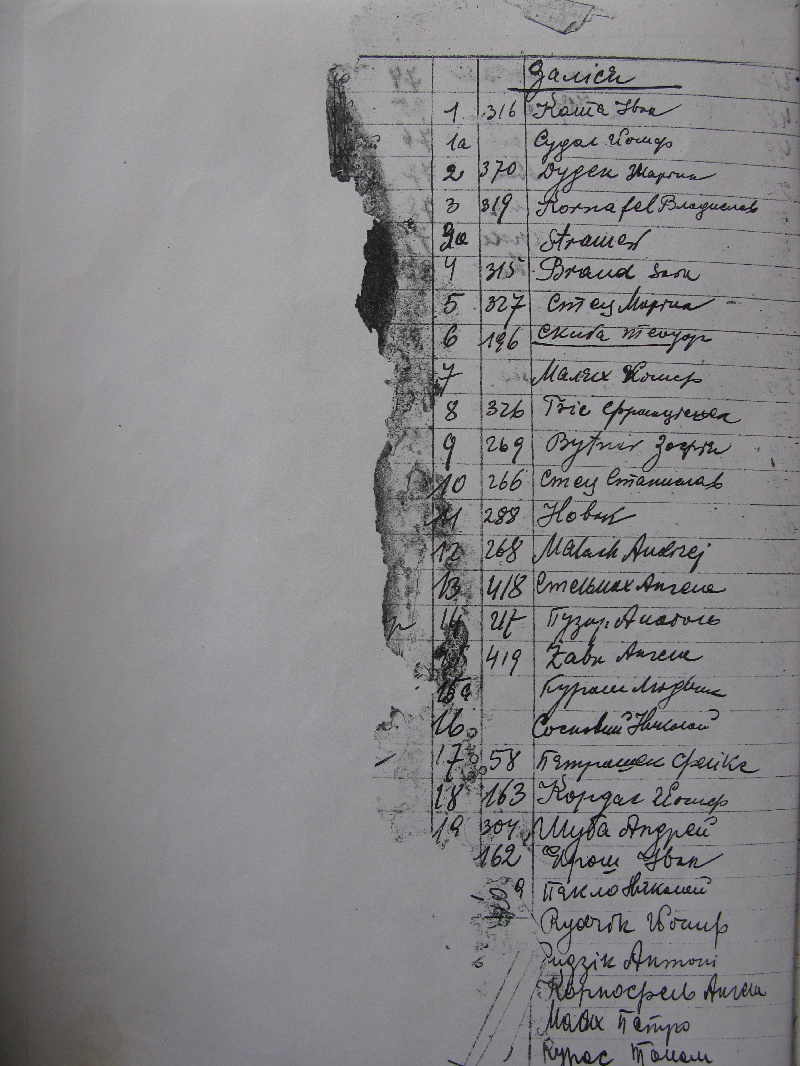 Залісся
1 316 Коша Іван
1а Судол Йосиф
2 370 Дуден Мартин
3 319 Kornafel Владислав
3а Stramer
4 315 Brand Sara
5 327 Стец Мартин
6 196 Скиба Теодор
7 Малях Йосиф
8 326 Францішек
9 269 Bytnar Зофія
10 266 Стец Станислав
11 288 Новак
12 268 Malach Andrzej
13 418 Стельмах Ангела
14 217 Пузар Анатоль
15 419 Ангела
15а Пураш Людвик
16 Сосновий Николай
17 58 Петрашек Фелікс
18 163 Кордас Йосиф
19 304 Шуба Андрей
162 Ярош Іван
Пекло Николай
Рудзік Йосиф
Ридзік Антоні
Корнофель Ангела
Малх Петро
Курас Томаш